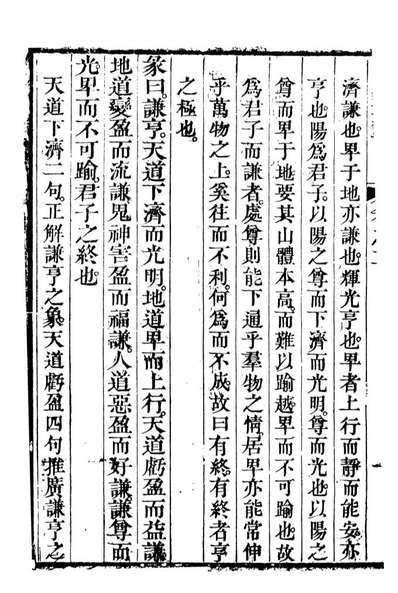 濟謙也。卑于地亦謙也。輝光亨也。卑者上行而靜而能安。亦
亨也。陽爲君子。以陽之尊而下濟而光明。尊而光也。以陽之
尊而卑于地。要其山體本高。而難以踰越。卑而不可踰也。故
爲君子而謙者。處尊則能下通乎羣物之情。居卑亦能常伸
乎萬物之上。奚往而不利。何爲而不成。故曰有終。有終者亨
之極也。
彖曰。謙亨。天道下濟而光明。地道卑而上行。天道虧盈而益謙。
地道變盈而流謙。鬼神害盈而福謙。人道惡盈而好謙。謙尊而
光。卑而不可踰。君子之終也。
天道下濟二句。正解謙亨之象。天道虧盈四句。推廣謙亨之